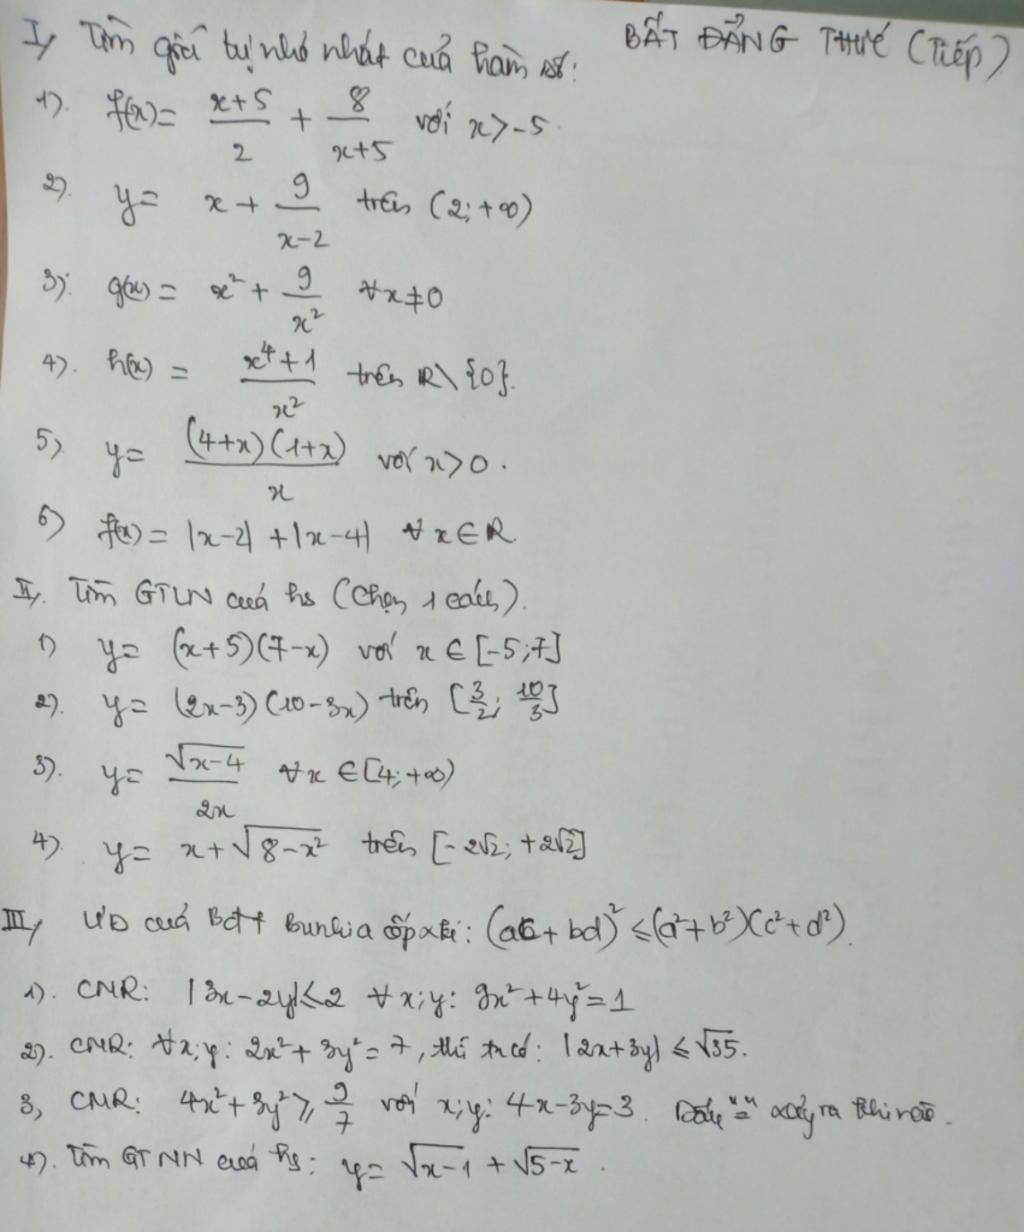 BẤT ĐẲNG THỨC (Tiếp)
I, Tìm giá trị nhỏ nhất của hàm số:
1). f(x) = (x+5)/2 + 8/(x+5) với x > -5.
2). y = x + 9/(x-2) trên (2; +∞)
3). g(x) = x² + 9/x² ∀x ≠ 0
4). h(x) = (x⁴+1)/x² trên R\{0}.
5) y = (4+x)(1+x)/x với x > 0.
6) f(x) = |x-2| + |x-4| ∀x ∈ R.
II, Tìm GTLN của hs (Chọn 1 cách).
1) y = (x+5)(7-x) với x ∈ [-5; 7]
2). y = (2x-3)(10-3x) trên [3/2; 10/3]
3). y = √(x-4)/2x ∀x ∈ [4; +∞)
4). y = x + √(8-x²) trên [-2√2; +2√2]
III, ƯD của Bđt Bunhiacốpxki: (ac + bd)² ≤ (a²+b²)(c²+d²).
1). CMR: |3x-2y| ≤ 2 ∀x;y: 9x² + 4y² = 1
2). CMR: ∀x;y: 2x² + 3y² = 7, thì ta có: |2x+3y| ≤ √35.
3, CMR: 4x² + 3y² ≥ 9/7 với x;y: 4x-3y=3. Dấu "=" xảy ra khi nào.
4). Tìm GTNN của hs: y = √(x-1) + √(5-x).